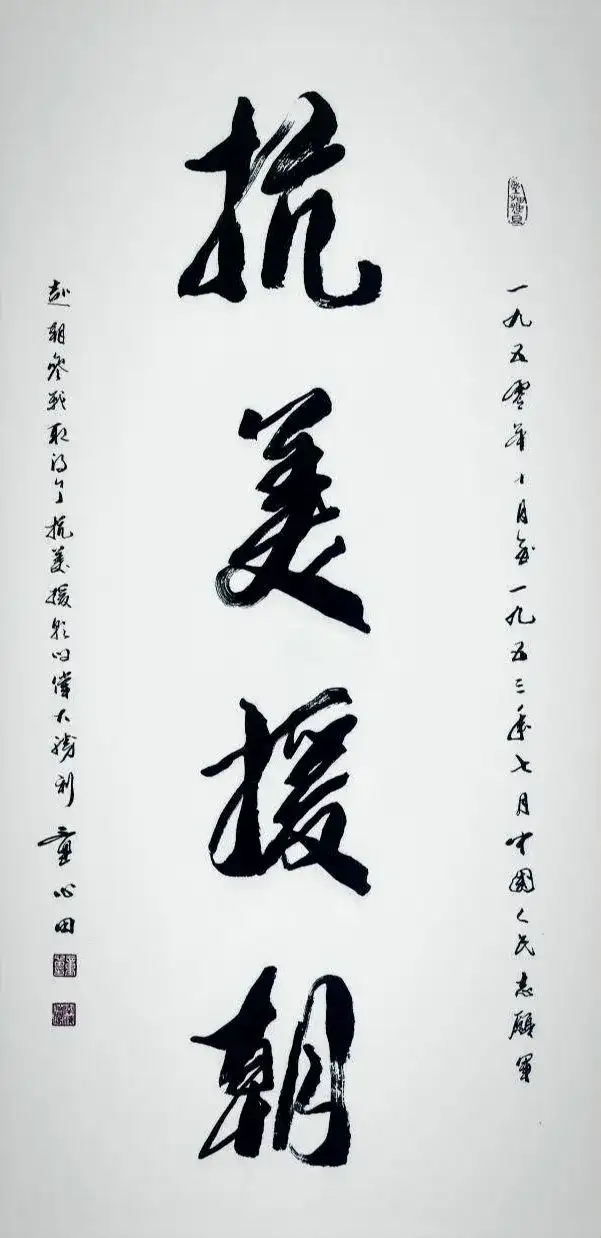 一九五零年十月至一九五三年七月中國人民志願軍
抗美援朝
赴朝參戰取得了抗美援朝的偉大勝利 董心田